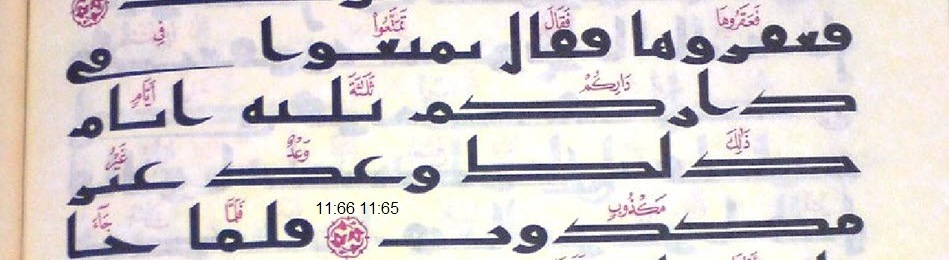 فَعَقَرُوهَا فَقَالَ تَمَتَّعُوا فِي
فعقروها فقال تمتعوا في
دَارِكُمْ ثَلَٰثَةَ أَيَّامٍ
داركم ثلثه ايام
ذَٰلِكَ وَعْدٌ غَيْرُ
ذلك وعد غير
مَكْذُوبٍ 11:66 11:65 فَلَمَّا جَآءَ
مكذوب فلما جا